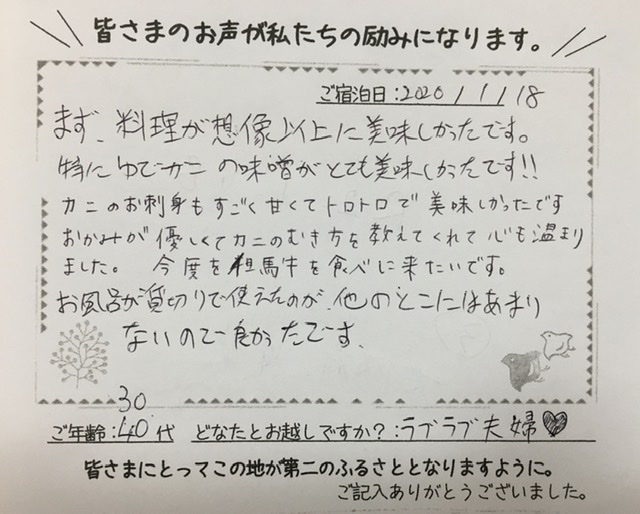 皆さまのお声が私たちの励みになります。
ご宿泊日:2020/1/18
まず、料理が想像以上に美味しかったです。
特にゆでガニの味噌がとても美味しかったです!!
カニのお刺身もすごく甘くてトロトロで美味しかったです
おかみが優しくてカニのむき方を教えてくれて心も温まり
ました。 今度を但馬牛を食べに来たいです。
お風呂が貸切りで使えたのが、他のとこにはあまり
ないので良かったです。
30
ご年齢:40代 どなたとお越しですか?:ラブラブ夫婦♥
皆さまにとってこの地が第二のふるさととなりますように。
ご記入ありがとうございました。